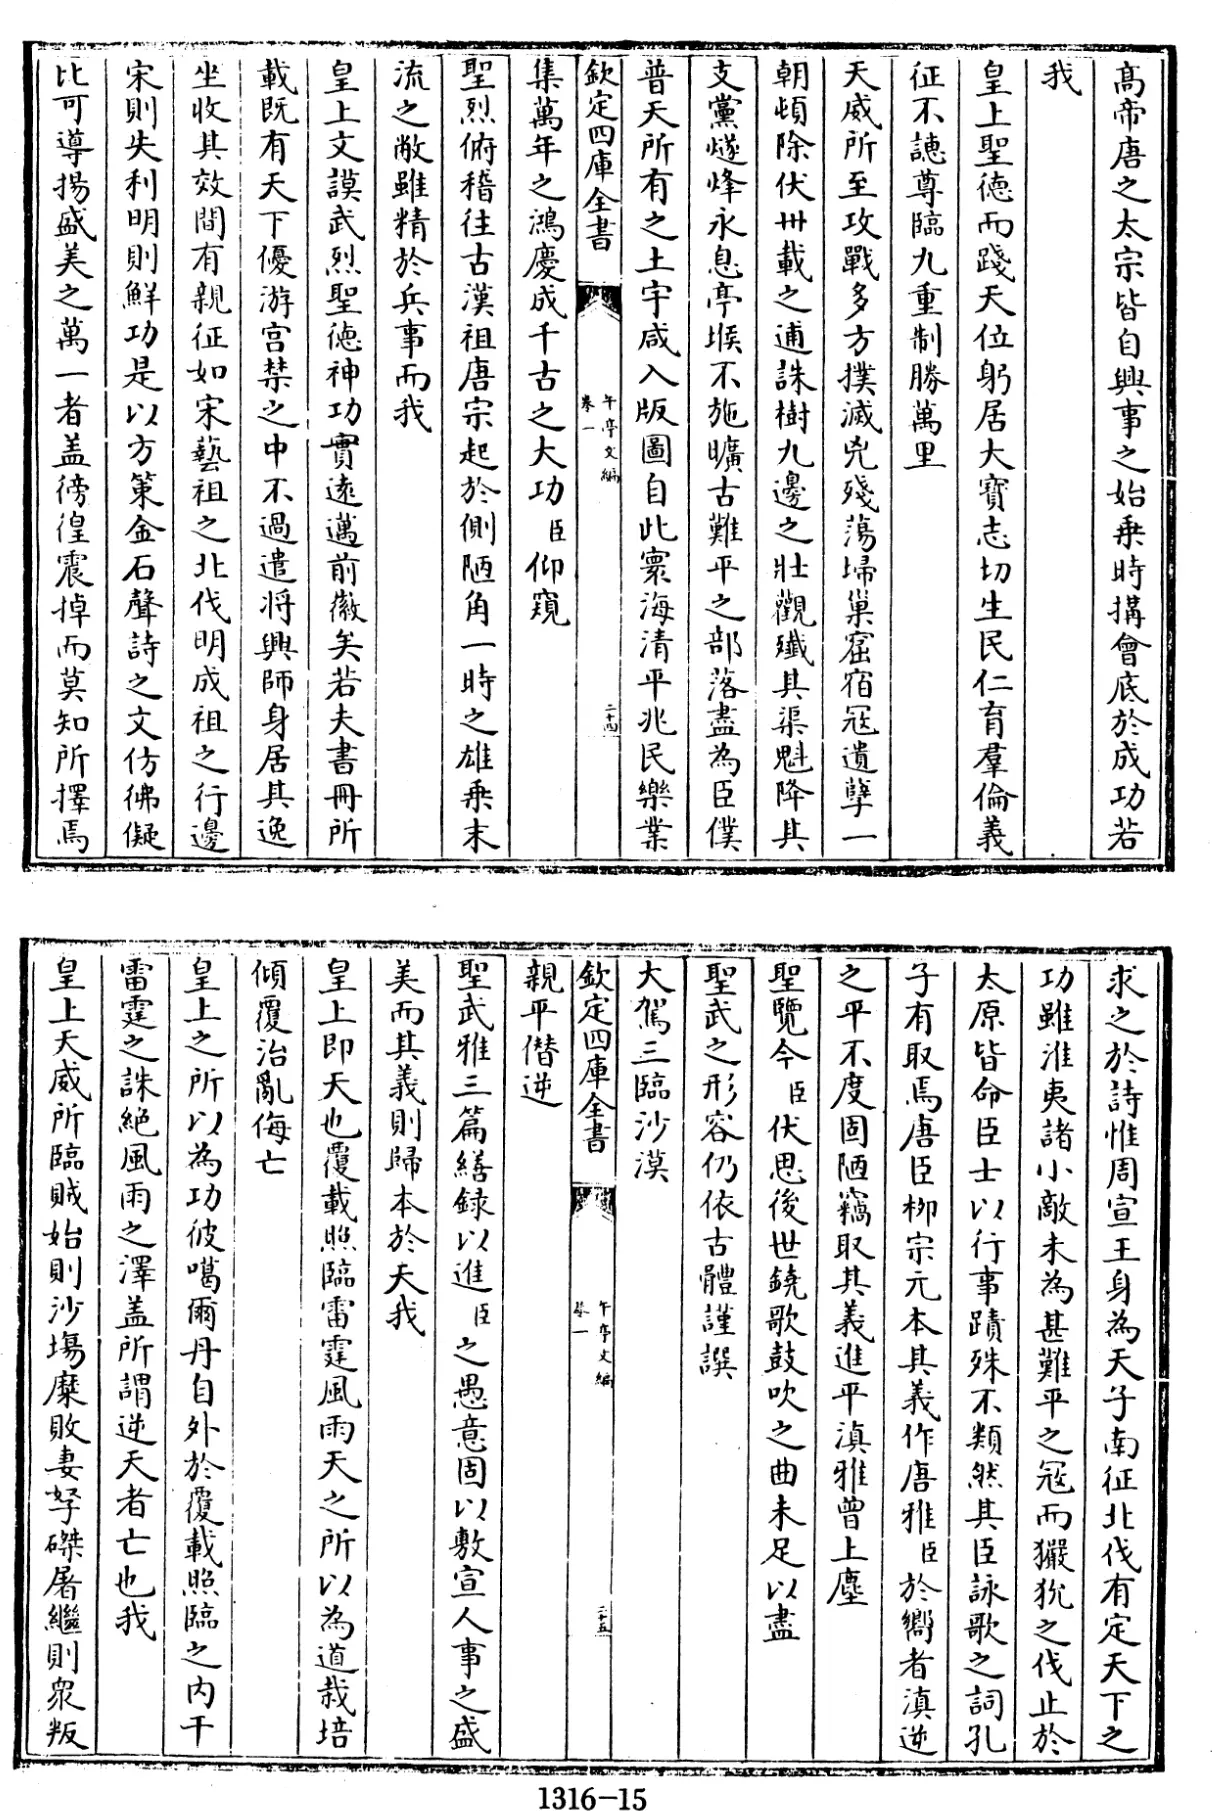 高帝唐之太宗皆自興事之始乗時搆會底於成功若
我
皇上聖德而踐天位躬居大寶志切生民仁育羣倫義
征不譓尊臨九重制勝萬里
天威所至攻戰多方撲滅兇殘蕩埽巢窟宿冦遺孽一
朝頓除伏卅載之逋誅樹九邊之壯觀殲其渠魁降其
支黨燧烽永息亭堠不施曠古難平之部落盡為臣僕
普天所有之土宇咸入版圖自此寰海清平兆民樂業
欽定四庫全書
午亭文編
卷一
二十四
集萬年之鴻慶成千古之大功臣仰窺
聖烈俯稽往古漢祖唐宗起於側陋角一時之雄乗末
流之敝雖精於兵事而我
皇上文謨武烈聖德神功實遠邁前徽矣若夫書冊所
載既有天下優游宫禁之中不過遣将興師身居其逸
坐收其效間有親征如宋藝祖之北伐明成祖之行邊
宋則失利明則鮮功是以方策金石聲詩之文仿彿儗
比可導揚盛美之萬一者盖徬徨震掉而莫知所擇焉
求之於詩惟周宣王身為天子南征北伐有定天下之
功雖淮夷諸小敵未為甚難平之冦而玁狁之伐止於
太原皆命臣士以行事蹟殊不類然其臣詠歌之詞孔
子有取焉唐臣柳宗元本其義作唐雅臣於嚮者滇逆
之平不度固陋竊取其義進平滇雅曾上塵
聖覽今臣伏思後世鐃歌鼓吹之曲未足以盡
聖武之形容仍依古體謹譔
大駕三臨沙漠
欽定四庫全書
午亭文編
卷一
二十五
親平僭逆
聖武雅三篇繕録以進臣之愚意固以敷宣人事之盛
美而其義則歸本於天我
皇上即天也覆載照臨雷霆風雨天之所以為道栽培
傾覆治亂侮亡
皇上之所以為功彼噶爾丹自外於覆載照臨之内干
雷霆之誅絶風雨之澤盖所謂逆天者亡也我
皇上天威所臨賊始則沙塲糜敗妻孥磔屠繼則衆叛
1316-15